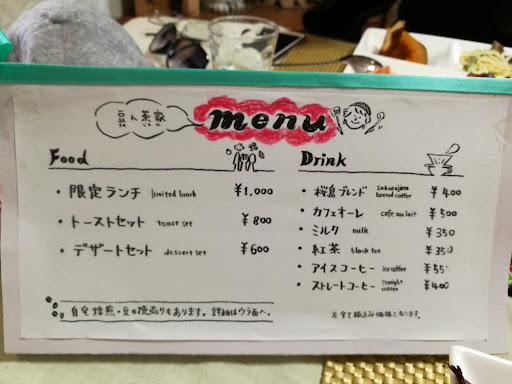 豆ん茶家
menu
Food
・限定ランチ limited lunch ¥1,000
・トーストセット toast set ¥800
・デザートセット dessert set ¥600
自宅焙煎・豆の挽売りもあります。詳細はウラ面へ。
Drink
・桜島ブレンド sakurajima brend coffee ¥400
・カフェオーレ cafe au lait ¥500
・ミルク milk ¥350
・紅茶 black tea ¥350
・アイスコーヒー ice coffee ¥55
・ストレートコーヒー straight coffee ¥400
※全て税込み価格となります。